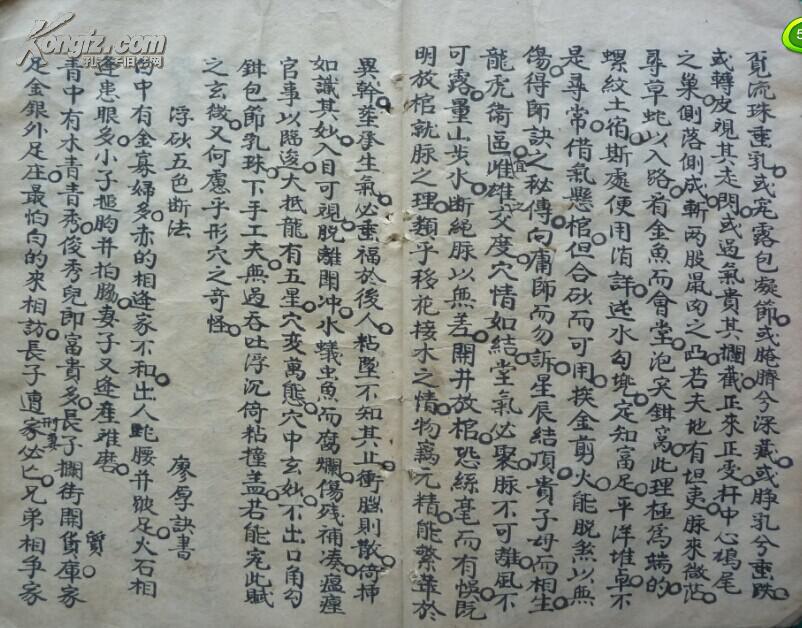 覓流珠垂乳或兔露包凝節或腌臍兮深藏或脖乳兮垂跌
或轉皮視其走閃或過氣貴其攔截正來正受杆中心鳩尾
之巢側落側成斬两股最肉之凸若夫地有坦夷脉來微茫
尋草蛇以入路看金魚而會堂泡矣鉗窩此理極為端的
螺紋土宿斯處便用消詳送水勾搬定知富足平洋堆卓不
是尋常借氣懸棺但合砂而可用挨金剪火能脱煞以無
傷得師訣之秘傳向庸師而勿訴星辰結頂貴子母而相生
龍虎衛區宜雌雄之交度穴情如結堂氣必聚脉不可離風不
可露量山步水断絕脉以無差開井放棺恐絲毫而有悞既
明放棺就脉之理類乎移花接木之情物竊元精能繁華於
異幹葬承生氣必垂福於後人粘墜不知其止衝腦則散倚挿
如識其妙入目可視脱離開冲水蟻虫魚而腐爛傷残補湊瘟㾮
官事以臨逡大抵龍有五星穴变萬態穴中玄妙不出口角勾
鉗包節乳珠下手工夫無過吞吐浮沉倚粘撞盖若能完此賦
之玄微又何慮乎形穴之奇怪
浮砂五色断法
廖厚訣書
白中有金寡婦多赤的相逢家不和出人駝腰并跛足火石相
逢患眼多小子搥胸并拍脇妻子又逢産难磨
青中有水青青秀俊秀兒郎富貴多長子攔街開貨庫家
質
足金銀外足庄最怕白的來相訪長子遭刑妻家必亡兄弟相争家
Kongfz.com
孔夫子旧书网